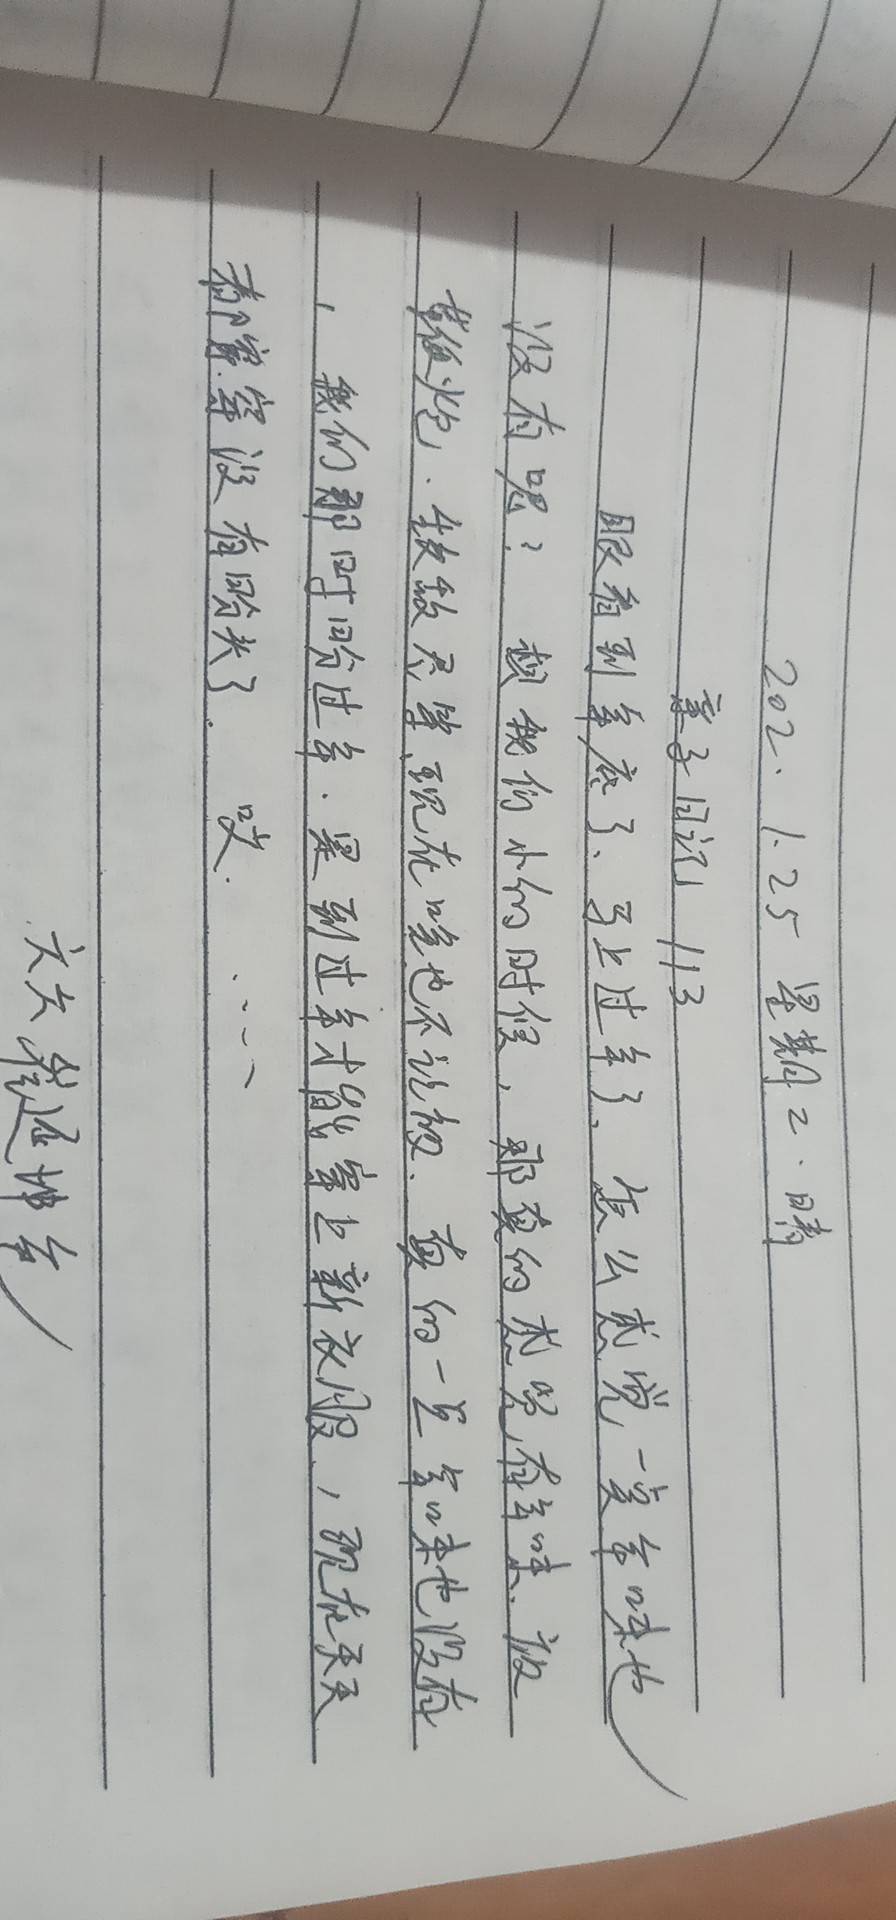 202.1.25 星期二.晴
亲子日记 113
眼看到年底了、马上过年了、怎么感觉一点年味也
没有呢？想我们小的时候，那真的感觉有年味.放
鞭炮.现在啥也不让放.真的一点年味也没有
，我们那时盼过年.是到过年才能穿上新衣服，现在天天
都穿没有盼头了.哎.....
六六